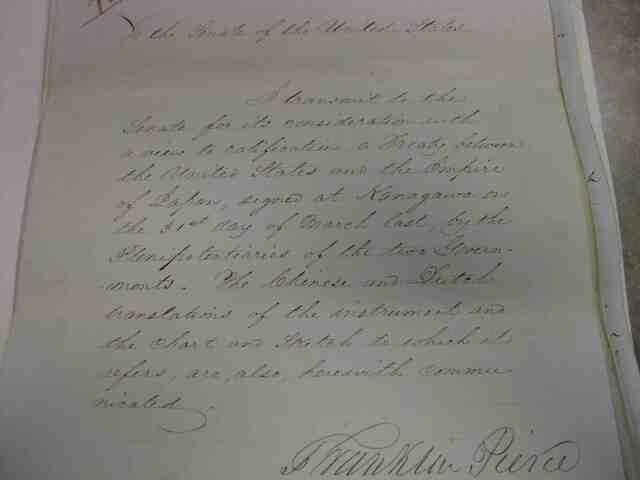 To the Senate of the United States.
I transmit to the
Senate for its consideration with
a view to ratification a Treaty between
the United States and the Empire
of Japan, signed at Kanagawa on
the 31st day of March last, by the
Plenipotentiaries of the two Govern-
-ments. The Chinese and Dutch
translations of the instrument and
the chart and sketch to which it
refers, are, also, herewith commu-
nicated.
Franklin Pierce